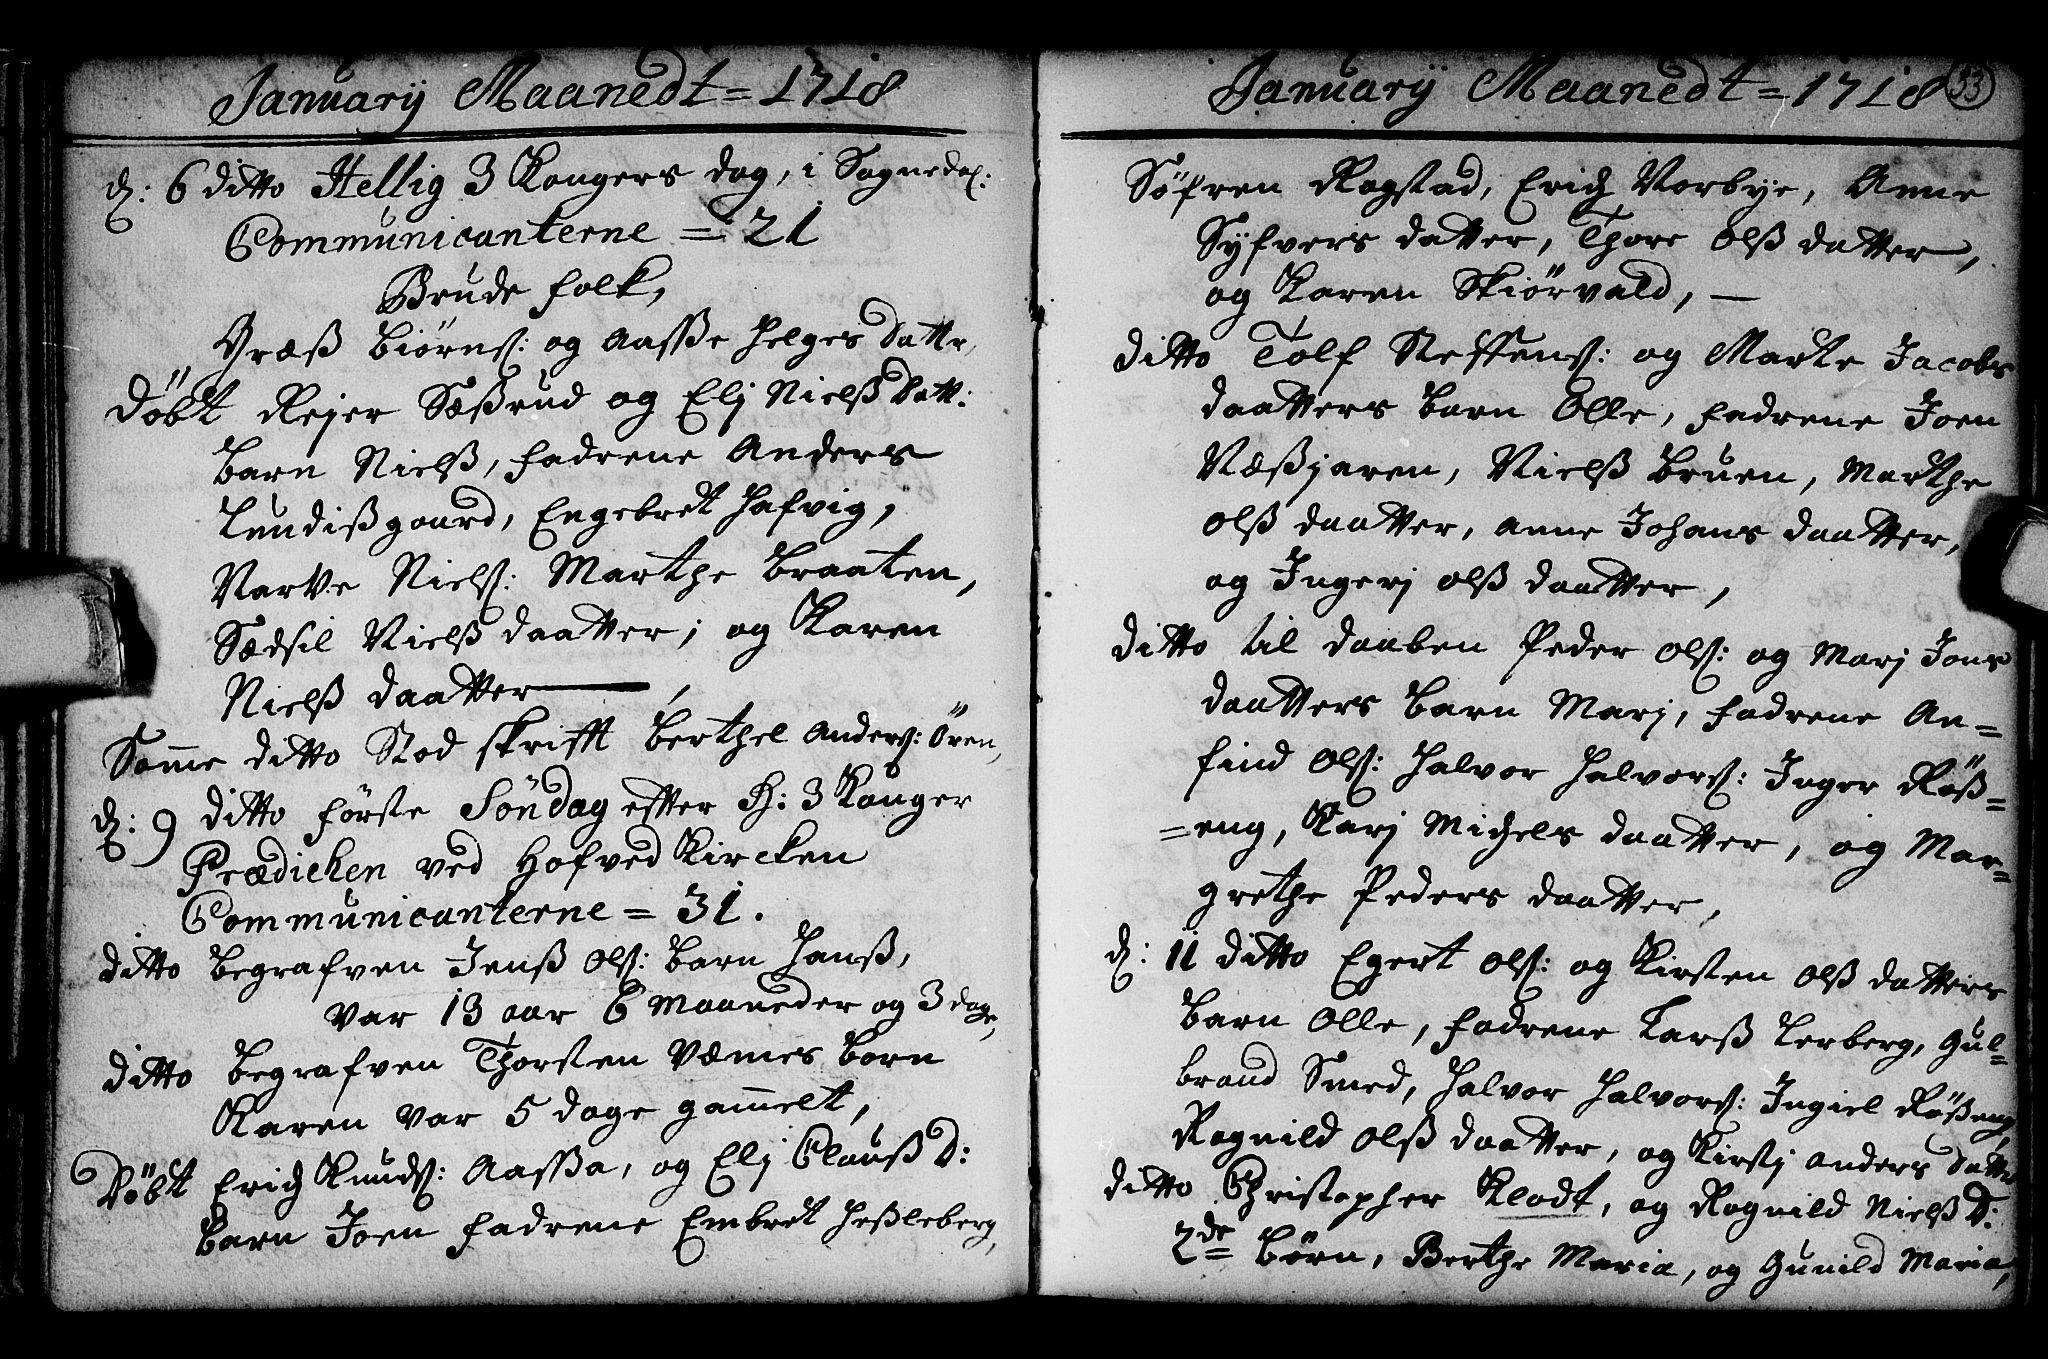 Januarÿ Maanedt = 1718
d: 6 ditto Hellig 3 Kongers dag, i Sognedal:
Communicanterne = 21
Brude folk,
Græß Biörnß: og Aasße Helges dattr,
Döbt Rejer Sæßrud og Elj Nielß datt:
barn Nielß, fadrene Anders
Lundißgaard, Engebret Hafvig,
Narve Nielß: Marthe Braaten,
Sædsil Nielß daatter; og Karen
Nielß daatter
Samme ditto Stod skrifft Berthel Anderß: Ören,
d: 9 ditto förste Söndag efter H: 3 Konger
Prædicken ved Hofved Kircken
Communicanterne = 31.
ditto begrafven Jenß Olß: barn Hanß,
var 13 aar 6 Maaneder og 3 dage,
ditto begrafven Thorsten Væmes born
Karen var 5 dage gammelt,
Döbt Erich Knudß: Aasßa, og Elj Clauß D:
barn Joen fadrene Embret Heßleberg,
Januarÿ Maanedt = 1718 53
Söfren Rogstad, Erich Vorbye, Anne
Syfvers datter, Thore Olß datter,
og Karen Skiörvald,
ditto Tolf Steffenß: og Marte Jacobs
daatters barn Olle, fadrene Joen
Næßjaren, Nielß Bruen, Marthe
Olß daatter, Anne Johans daatter,
og Ingerj Olß daatter,
ditto til daaben Peder Olß: og Marj Jons
daatters barn Marj, fadrene An=
find Olß: Halvor Halvorß: Inger Röß=
=eng, Karj Michels daatter, og Mar=
grethe Peders daatter,
d: 11 ditto Egert Olß: og Kirsten Olß datters
barn Olle, fadrene Larß Lerberg, Gul=
brand Smed, Halvor Halvorß: Ingiel Rößeng,
Ragnild Olß daatter, og Kirstj Anders datter
ditto Christopher Klodt, og Ragnild Nielß D:
2de börn, Berthe Maria, og Gunild Maria,